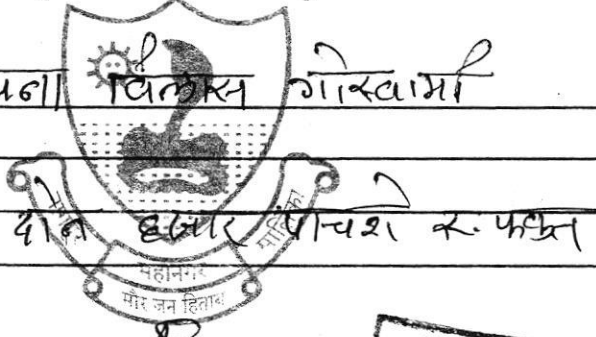 विलास गोस्वामी
दोन हजार पाचशे रु. फक्त
महानगर पालिका
पौर जन हिताय